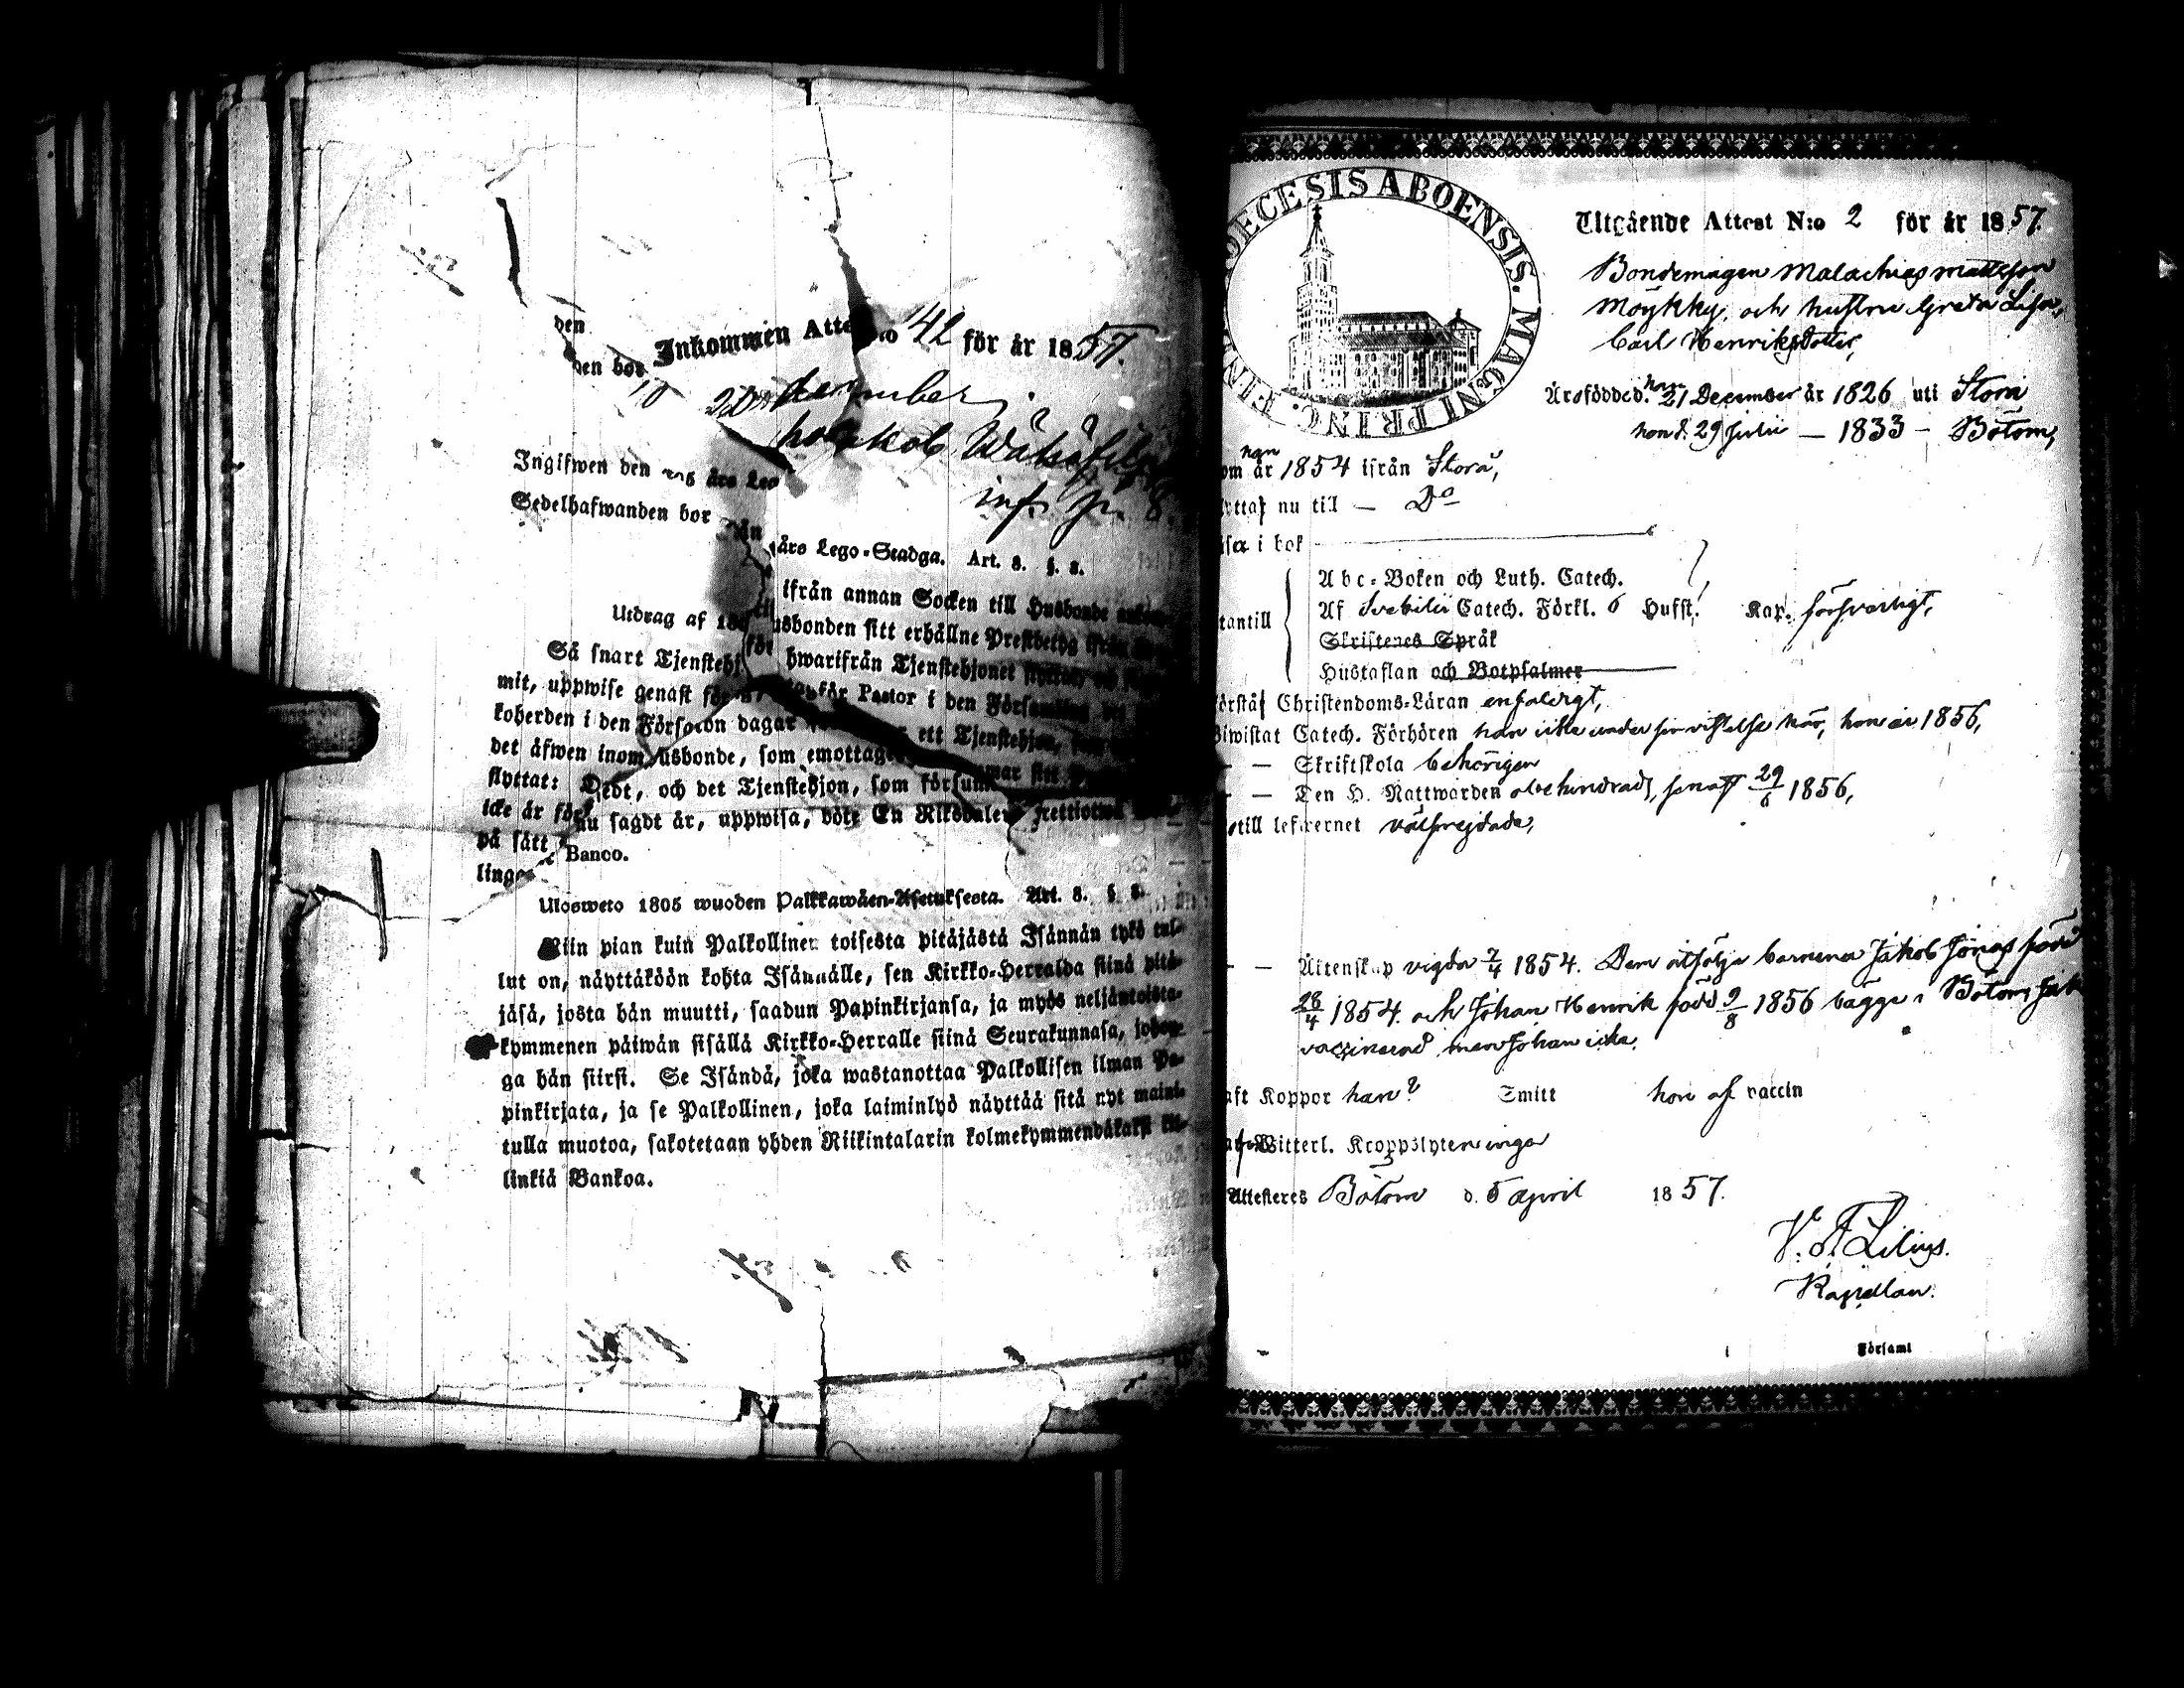 Inkommen Atte :o 42 för år 1857.
den
den bor
10
20 december
hos Jakob
inf. p. 8
Ingifwen den
Sedelhafwanden bor
års Lego-Stadga. Art. 8. §. 8.
Utdrag af
ifrån annan Socken till Husbonde
Så snart Tjenstehj usbonden sitt erhållne Prestbetyg ifrån
mit, uppwise genast för hwarifrån Tjenstehjonet flyttat,
koherden i den för Pastor i den
det äfwen inom dagar ett Tjenstehjon,
flyttat: usbonde, som emottager
icke är för edt, och det Tjenstehjon, som försummar sitt
på sätt nu sagdt är, uppwisa, böte En Riksdaler trettiotwå
linga Banco.
Ulosweto 1805 wuoden Palkkawäen-Asetuksesta. Art. 8. §. 8.
Niin pian kuin Palkollinen toisesta pitäjästä Isännän tykö tul-
lut on, näyttäköön kohta Isännälle, sen Kirkko-Herralda siinä pitä-
jäsä, josta hän muutti, saadun Papinkirjansa, ja myös neljäntoista-
kymmenen päiwän sisällä Kirkko-Herralle siinä Seurakunnasa, johon-
ga hän siirsi. Se Isändä, joka wastanottaa Palkollisen ilman Pa-
pinkirjata, ja se Palkollinen, joka laiminlyö näyttää sitä nyt maini-
tulla muotoa, sakotetaan yhden Riikintalarin kolmekymmendäkaksi kil-
linkiä Bankoa.
DIECESIS ABOENSIS. MAGNI PRINC. FIN
Utgående Attest N:o 2 för år 1857.
Bondemågen Malachias Mattsson
Möykky, och hustru Greta Lisa,
Carl Henriksdotter,
Äro födde d. han 21 December år 1826 uti Storå
hon d. 29 Julii — 1833 — Bötom,
om han år 1854 ifrån Storå,
yttar nu till — Do
äsa i bok
Abc-Boken och Luth. Catech.
tantill Af Svebilii Catech. Förkl. 6 Hufst. Kap. försvarligt,
Skriftenes Språk
Hustaflan och Botpsalmer
örstå Christendoms-Läran enfaldigt,
Biwistat Catech. Förhören han icke under sin vistelse här, hon år 1856,
— — Skriftskola behörigen
— — Den H. Nattwarden obehindrad, senast 29/6 1856,
till lefwernet välfrejdade,
— — Äktenskap vigda 7/4 1854. Dem åtfölja barnena Jakob Jonas född
28/4 1854. och Johan Henrik född 9/8 1856 bägge i Bötom,
vaccinerad men Johan icke.
aft Koppor han? Smitt hon af vaccin
Witterl. Kroppslyten inga
Attesteres Bötom d. 5 April 1857.
V. A. Lilius.
Kapellan.
Församl